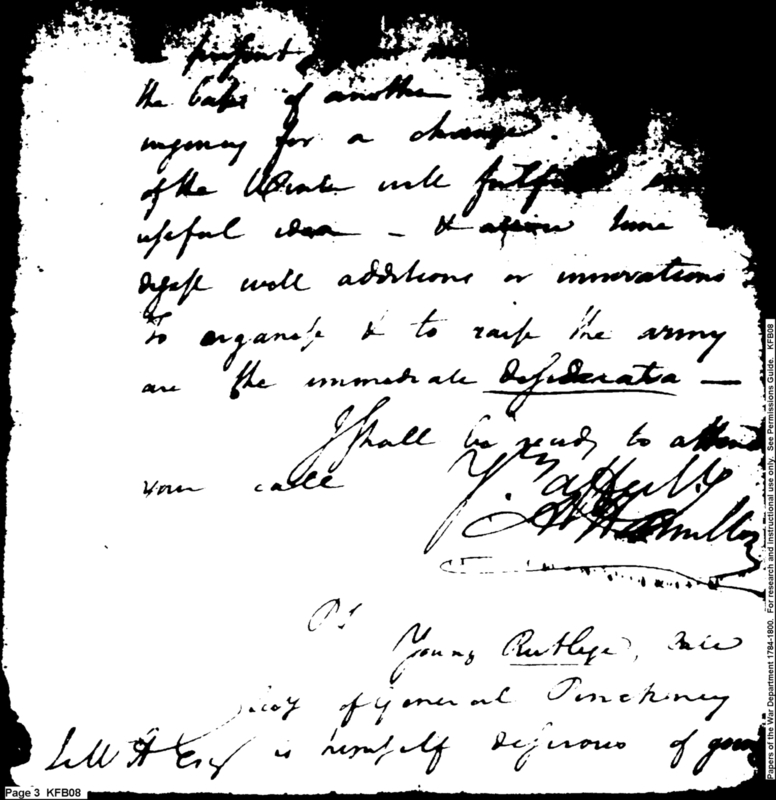 present
the of another
urgency for a change.
of the will fulfil
useful idea — & some time
digest well additions or innovations
To organise & to raise the army
are the immediate desiderata —
I shall be ready to attend
your call
Yrs. affectly
A Hamilton
PS
Young Rutlege, late
of General Pinckney
is himself desirous of going
Esq
Page 3 KFB08
Papers of the War Department 1784-1800. For research and instructional use only. See Permissions Guide. KFB08